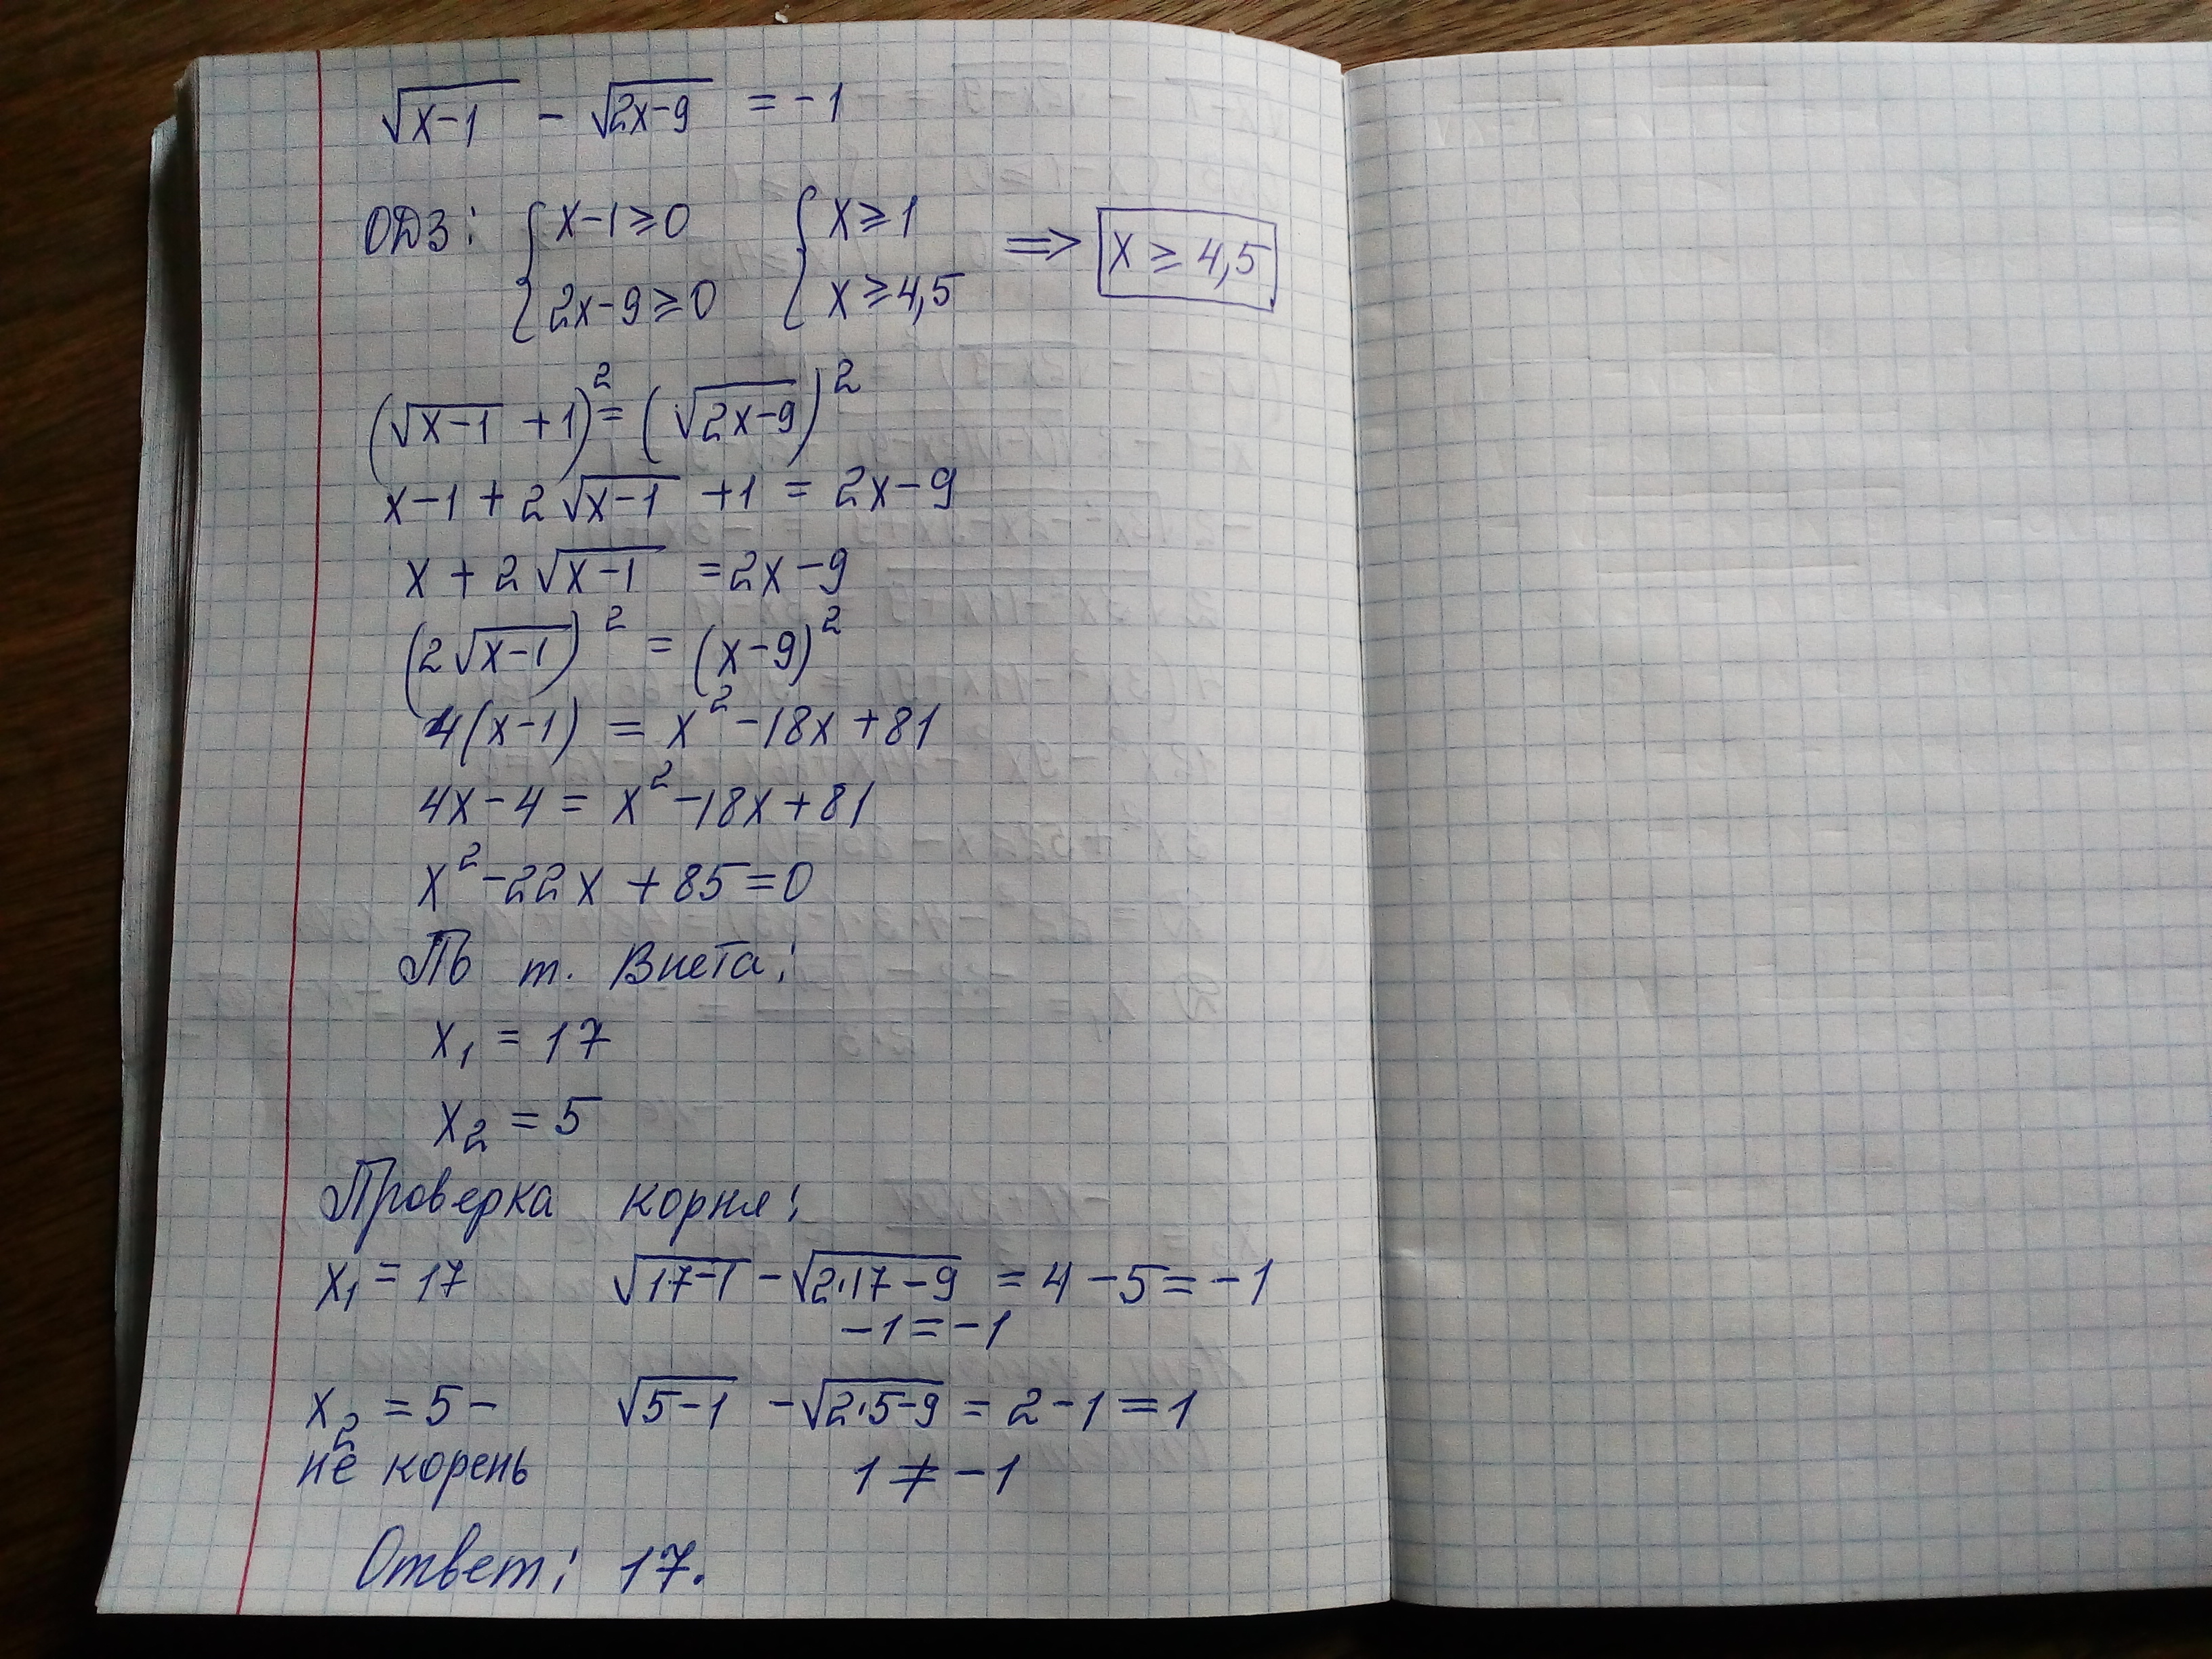 √(x-1) - √(2x-9) = -1
ОДЗ: { x-1≥0 { x≥1 ⟹ x ≥ 4,5
2x-9≥0 x≥4,5
(√(x-1) +1)² = (√(2x-9))²
x-1+2√(x-1) +1 = 2x-9
x+2√(x-1) =2x-9
(2√(x-1))² = (x-9)²
4(x-1) = x²-18x+81
4x-4 = x²-18x+81
x²-22x+85=0
По т. Виета:
x₁ = 17
x₂ = 5
Проверка корня:
x₁ = 17 √(17-1) - √(2·17-9) = 4-5 = -1
-1=-1
x₂ = 5 - √(5-1) - √(2·5-9) = 2-1=1
не корень 1 ≠ -1
Ответ: 17.